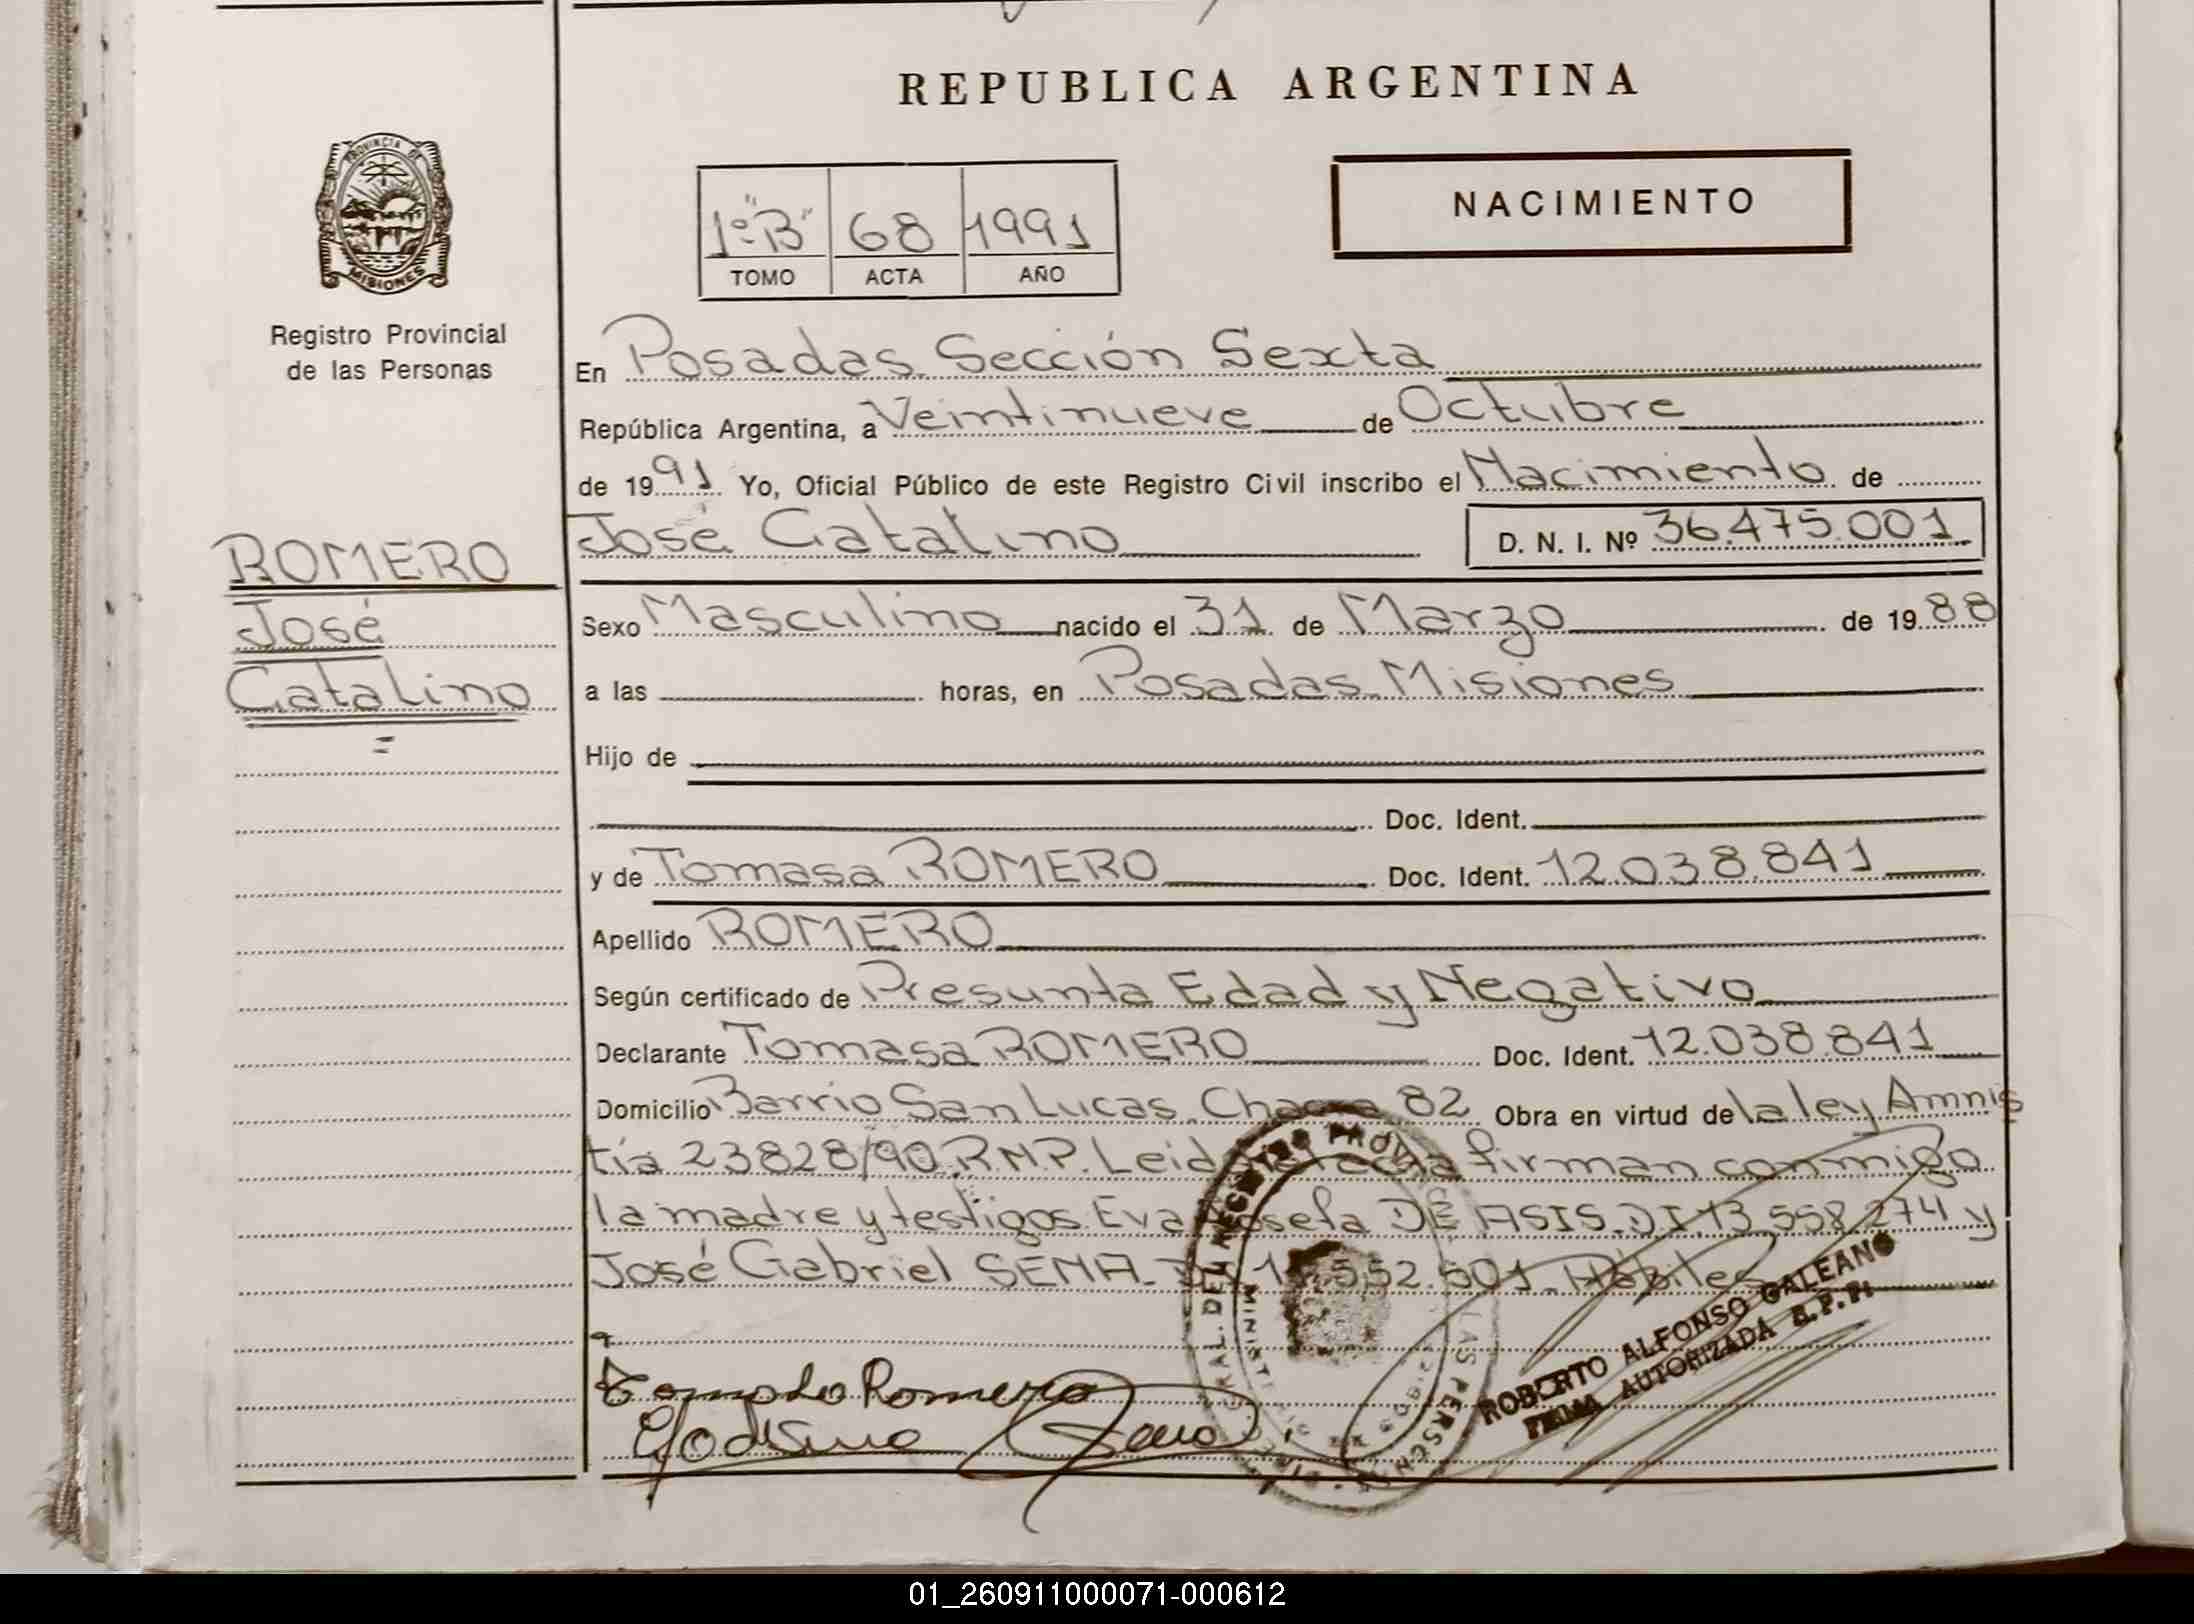 REPUBLICA ARGENTINA
PROVINCIA DE
MISIONES
Registro Provincial
de las Personas
1º "B" 68 1991
TOMO ACTA AÑO
NACIMIENTO
En Posadas Sección Sexta
República Argentina, a Veintinueve de Octubre
de 1991 Yo, Oficial Público de este Registro Civil inscribo el Nacimiento de
José Catalino D. N. I. Nº 36.475.001
ROMERO
José
Catalino
Sexo Masculino nacido el 31 de Marzo de 1988
a las horas, en Posadas Misiones
Hijo de
Doc. Ident.
y de Tomasa ROMERO Doc. Ident. 12.038.841
Apellido ROMERO
Según certificado de Presunta Edad y Negativo
Declarante Tomasa ROMERO Doc. Ident. 12.038.841
Domicilio Barrio San Lucas. Chacra 82 Obra en virtud de la ley Amnis
tía 23828/90 R.N.P. Leida el acta firman conmigo
la madre y testigos Eva Josefa DE ASIS. DI 13.558.274 y
José Gabriel SENA. 552.501. Hábiles
Romero
ROBERTO ALFONSO GALEANO
FIRMA AUTORIZADA R.P.P.
01_260911000071-000612